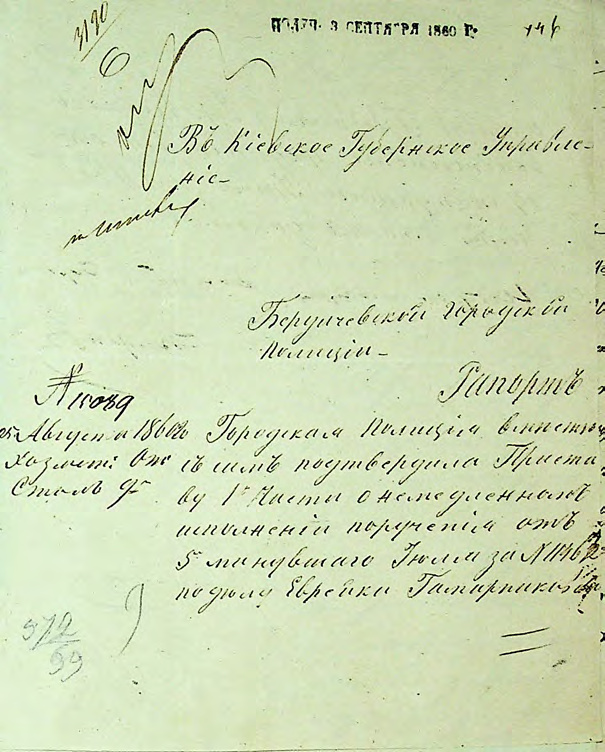 ПОЛУЧ. 3 СЕНТЯБРЯ 1860 Г. 146
3190
6
Въ Кіевское Губернское Управле-
ніе-
Бердичевской Городской
Полиціи-
Рапортъ
№ 11039
25 Августа 1860
Столъ 2й
Городская Полиція вместѣ
съ симъ подтвердила Приста
ву 1й Части о немедленномъ
исполненіи порученія отъ
5 минувшаго Іюля за N 11462
по дѣлу Еврейки
372
99